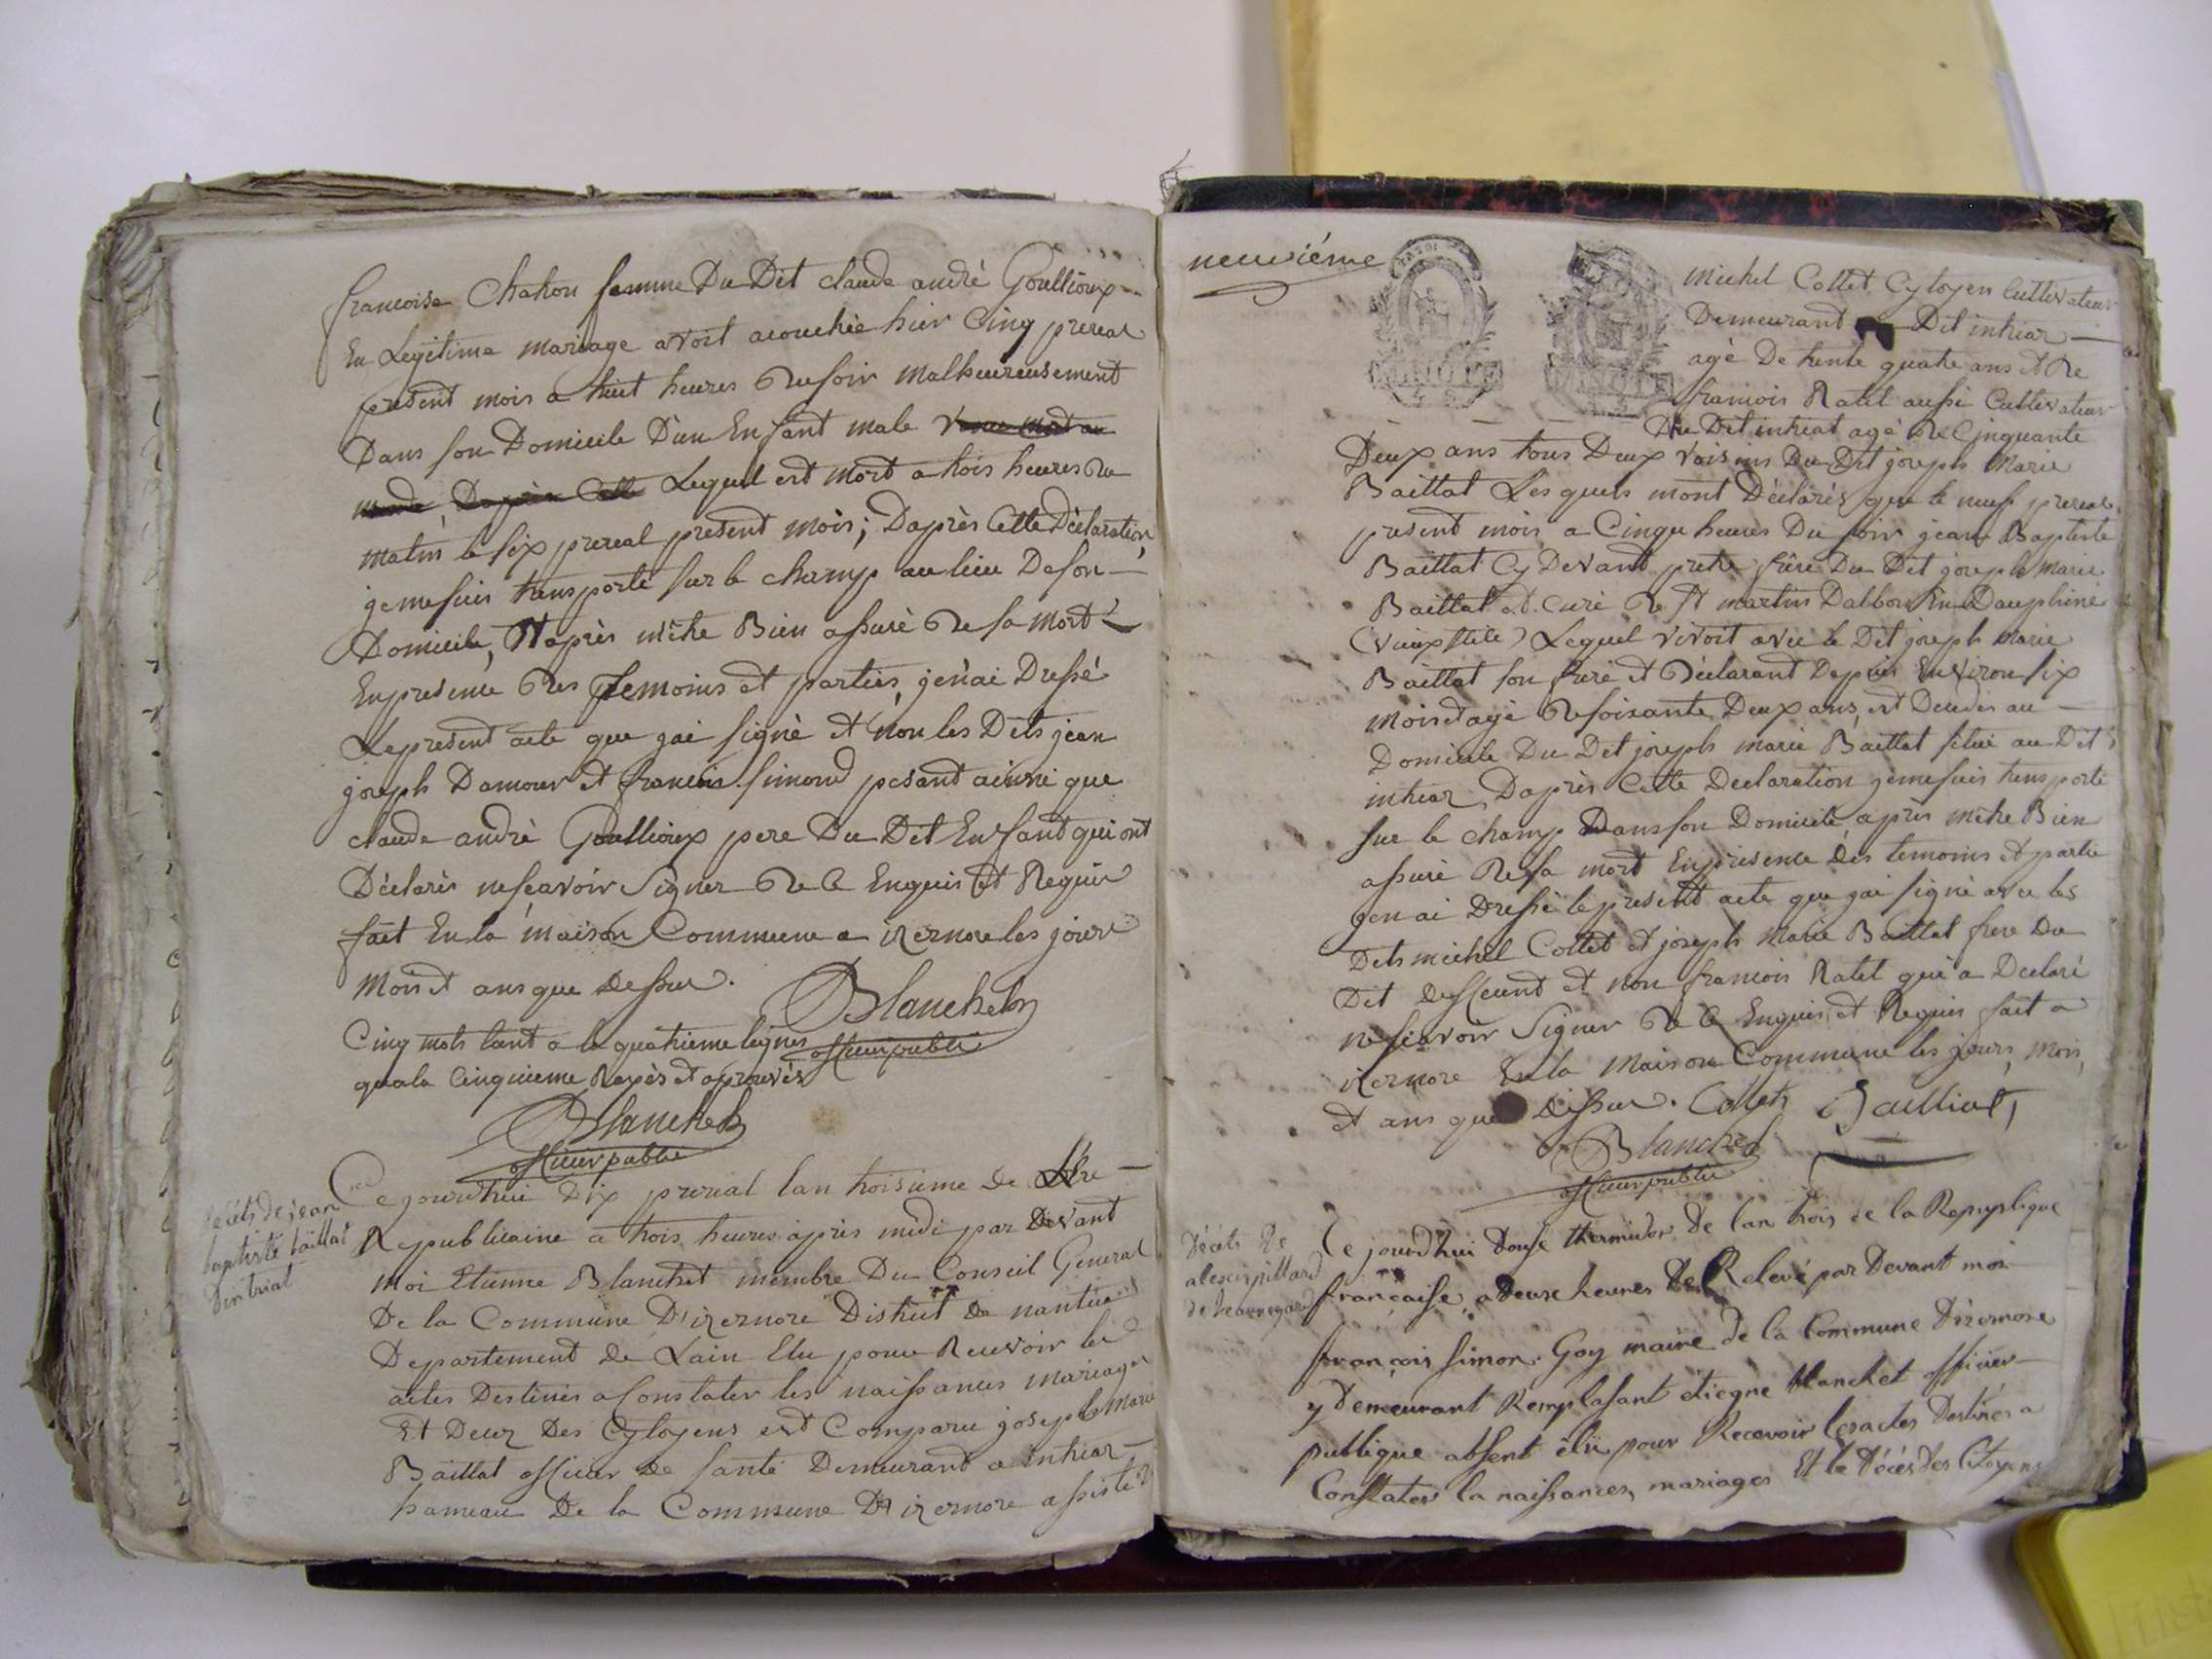 francoise Chaton femme Du Dit claude andrè Goullioux
En Legitime mariage avoit acouchée hier Cinq prereal
present mois a huit heures Du soir Malheureusement
Dans son Domicile D'un Enfant male
Lequel est mort a trois heures Du
matin le six prereal present mois; Daprès Cette Déclaration,
je me suis transporté sur le champ au lieu De son
Domicile, Et après m'être Bien assuré De sa mort
En presence Des temoins et parties, j'en ai Dressé
Le present acte que j'ai signè et non les Dits jean
joseph Damour et francois simond pesant ainsi que
claude andrè Goullioux pere Du Dit Enfant qui ont
Déclarès ne scavoir Signer De ce Enquis Et Requis
fait En la maison Commune a izernore les jour
Mois et ans que Dessus.
Blanchet
officier public
Cinq mots tant a la quatrieme lignes
qua la Cinquieme Rayès et aprouvès
Blanchet
officier public
décéts de jean
baptiste baillat
Dintriat
Ce jourd'hui Dix prereal lan troisieme de L'Ere
Republicaine a trois heures après midi par Devant
Moi Etienne Blanchet membre Du Conseil General
De la Commune D'izernore District de nantua
Departement de Lain Elu pour Recevoir les
actes Destinés a Constater les naissances mariages
Et Decez Des Cytoyens est Comparu joseph Marie
Baillat officier de santé Demeurant a intriat
hameau De la Commune D'izernore assisté D
neuvième
Michel Collet Cytoyen Cultivateur
Demeurant Dit intriat
agé De trente quatre ans et De
francois Ratel aussi Cultivateur
Du Dit intriat agé De Cinquante
Deux ans tous Deux voisins Du Dit joseph Marie
Baillat Les quels m'ont Déclarés que le neuf prereal
present mois a Cinque heures Du soir jean Baptiste
Baillat Cy Devant pretre frère Du Dit joseph Marie
Baillat et Curé De St martin Dalbon En Dauphiné
(vieux stile) Lequel vivoit avec le Dit joseph Marie
Baillat son frere et Déclarant Depuis Environ six
Mois et agé De soixante Deux ans, est Decedé au
Domicile Du Dit joseph marie Baillat situé au Dit
intriat, Daprès Cette Declaration je me suis transporté
sur le champ Dans son Domicile, après m'être Bien
assuré De sa mort En presence Des temoins et partie
j'en ai Dressé le present acte que j'ai signé avec les
Dits michel Collet et joseph Marie Baillat frere Du
Dit et non francois Ratel qui a Declaré
ne scavoir Signer De ce Enquis et Requis fait a
izernore En la Maison Commune les jours, mois,
et ans que Dessus. Collet Bailliat
Blanchet
officier public
Décéts De
alexis pillard
de beauregard
Ce jourd'hui douse thermidor de lan trois de la Repuplique
française, a deuse heures de Relevé par Devant moi
françois simon Goy maire de la Commune dizernore
y Demeurant Remplasant etiegne blanchet officier
publique absent élu pour Recevoir les actes Destinés a
Constater la naissances, mariages Et le décés des Citoyens